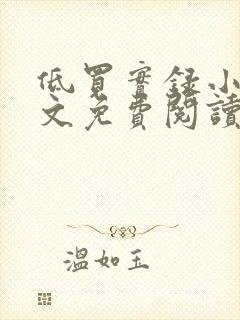 低買實錄小
文免費閱讀
溫如玉